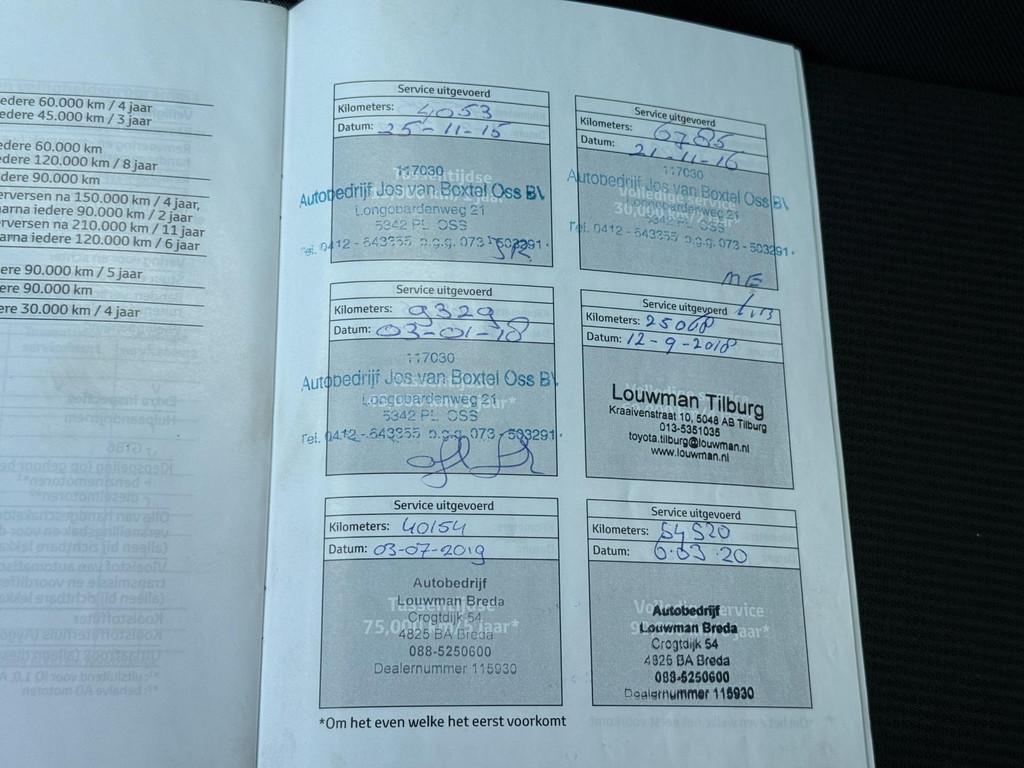 edere 60.000 km / 4 jaar
edere 45.000 km / 3 jaar
edere 60.000 km
edere 120.000 km / 8 jaar
dere 90.000 km
erversen na 150.000 km / 4 jaar,
arna iedere 90.000 km / 2 jaar
erversen na 210.000 km / 11 jaar
arna iedere 120.000 km / 6 jaar
ere 90.000 km / 5 jaar
ere 90.000 km
ere 30.000 km / 4 jaar
Service uitgevoerd
Kilometers: 4053
Datum: 25-11-15
Tussentijdse
117030
Autobedrijf Jos van Boxtel Oss BV
Longobardenweg 21
5342 PL OSS
Tel. 0412 - 643355 b.g.g. 073 - 503291
Service uitgevoerd
Kilometers: 6785
Datum: 21-11-16
Volledige service
30,000 km
117030
Autobedrijf Jos van Boxtel Oss BV
Longobardenweg 21
5342 PL OSS
Tel. 0412 - 643355 b.g.g. 073 - 503291
ME
Service uitgevoerd
Kilometers: 9329
Datum: 03-01-18
117030
Autobedrijf Jos van Boxtel Oss BV
Longobardenweg 21
5342 PL OSS
Tel. 0412 - 643355 b.g.g. 073 - 503291
Service uitgevoerd
Kilometers: 25068
Datum: 12-9-2018
Louwman Tilburg
Kraaivenstraat 10, 5048 AB Tilburg
013-5351035
toyota.tilburg@louwman.nl
www.louwman.nl
Service uitgevoerd
Kilometers: 40154
Datum: 03-07-2019
Tussentijdse
75,000 km/5 jaar*
Autobedrijf
Louwman Breda
Crogtdijk 54
4825 BA Breda
088-5250600
Dealernummer 115930
Service uitgevoerd
Kilometers: 54520
Datum: 6.03.20
Volledige service
jaar*
Autobedrijf
Louwman Breda
Crogtdijk 54
4825 BA Breda
088-5250600
Dealernummer 115930
*Om het even welke het eerst voorkomt